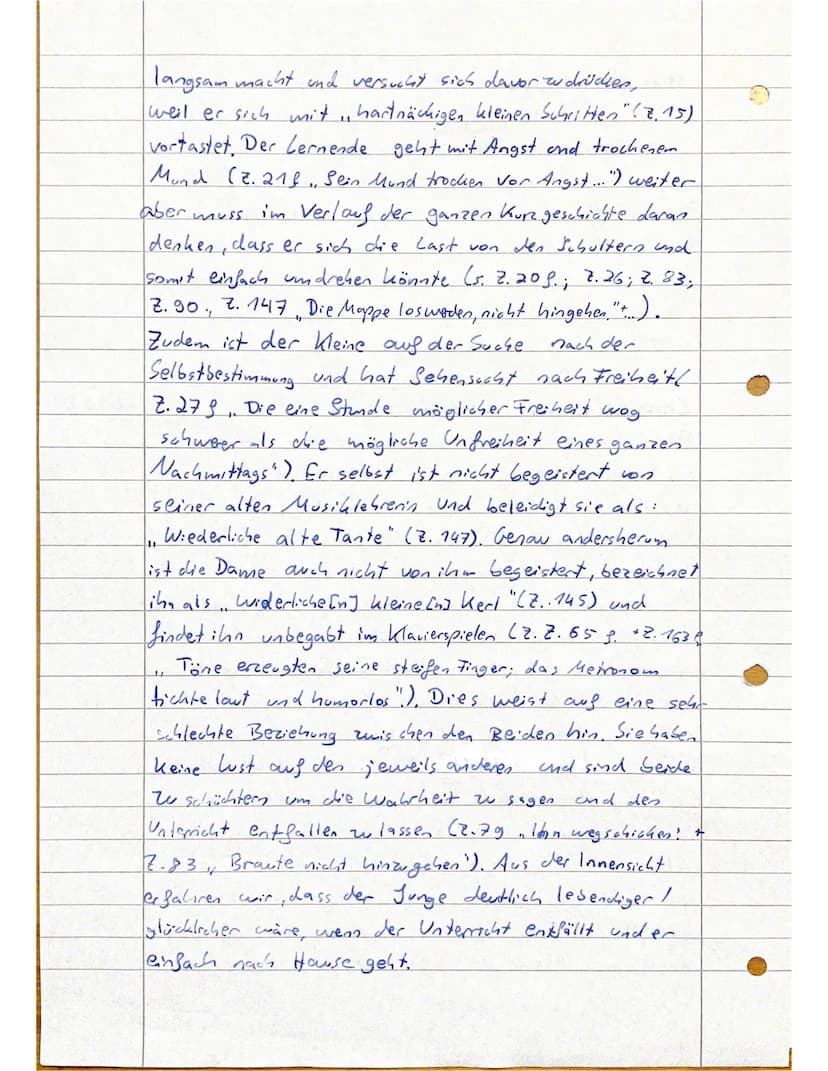 langsam macht und versucht sich davor zu drücken,
weil er sich mit „hartnäckigen kleinen Schritten" (Z. 15)
vortastet. Der Lernende geht mit Angst und trockenem
Mund (Z. 21f „Sein Mund trocken vor Angst...") weiter
aber muss im Verlauf der ganzen Kurzgeschichte daran
denken, dass er sich die Last von den Schultern und
somit einfach umdrehen könnte (s. Z. 20 f.; Z. 26; Z. 83;
Z. 90., Z. 147 „Die Mappe loswerden, nicht hingehen."+...).
Zudem ist der Kleine auf der Suche nach der
Selbstbestimmung und hat Sehensucht nach Freiheit(
Z. 27f „Die eine Stunde möglicher Freiheit wog
schwerer als die mögliche Unfreiheit eines ganzen
Nachmittags"). Er selbst ist nicht begeistert von
seiner alten Musiklehrerin und beleidigt sie als:
„Wiederliche alte Tante" (Z. 147). Genau andersherum
ist die Dame auch nicht von ihm begeistert, bezeichnet
ihn als „widerliche[n] kleine[n] Kerl" (Z. 145) und
findet ihn unbegabt im Klavierspielen (Z. Z. 65 f. +Z. 163f
„Töne erzeugten seine steifen Finger; das Metronom
tickte laut und humorlos".). Dies weist auf eine sehr
schlechte Beziehung zwischen den Beiden hin. Sie haben
keine Lust auf den jeweils anderen und sind beide
zu schüchtern um die Wahrheit zu sagen und den
Unterricht entfallen zu lassen (Z. 79 „Ihn wegschicken! +
Z. 83 „Braute nicht hinzugehen"). Aus der Innensicht
erfahren wir, dass der Junge deutlich lebendiger/
glücklicher wäre, wenn der Unterricht entfällt und er
einfach nach Hause geht.